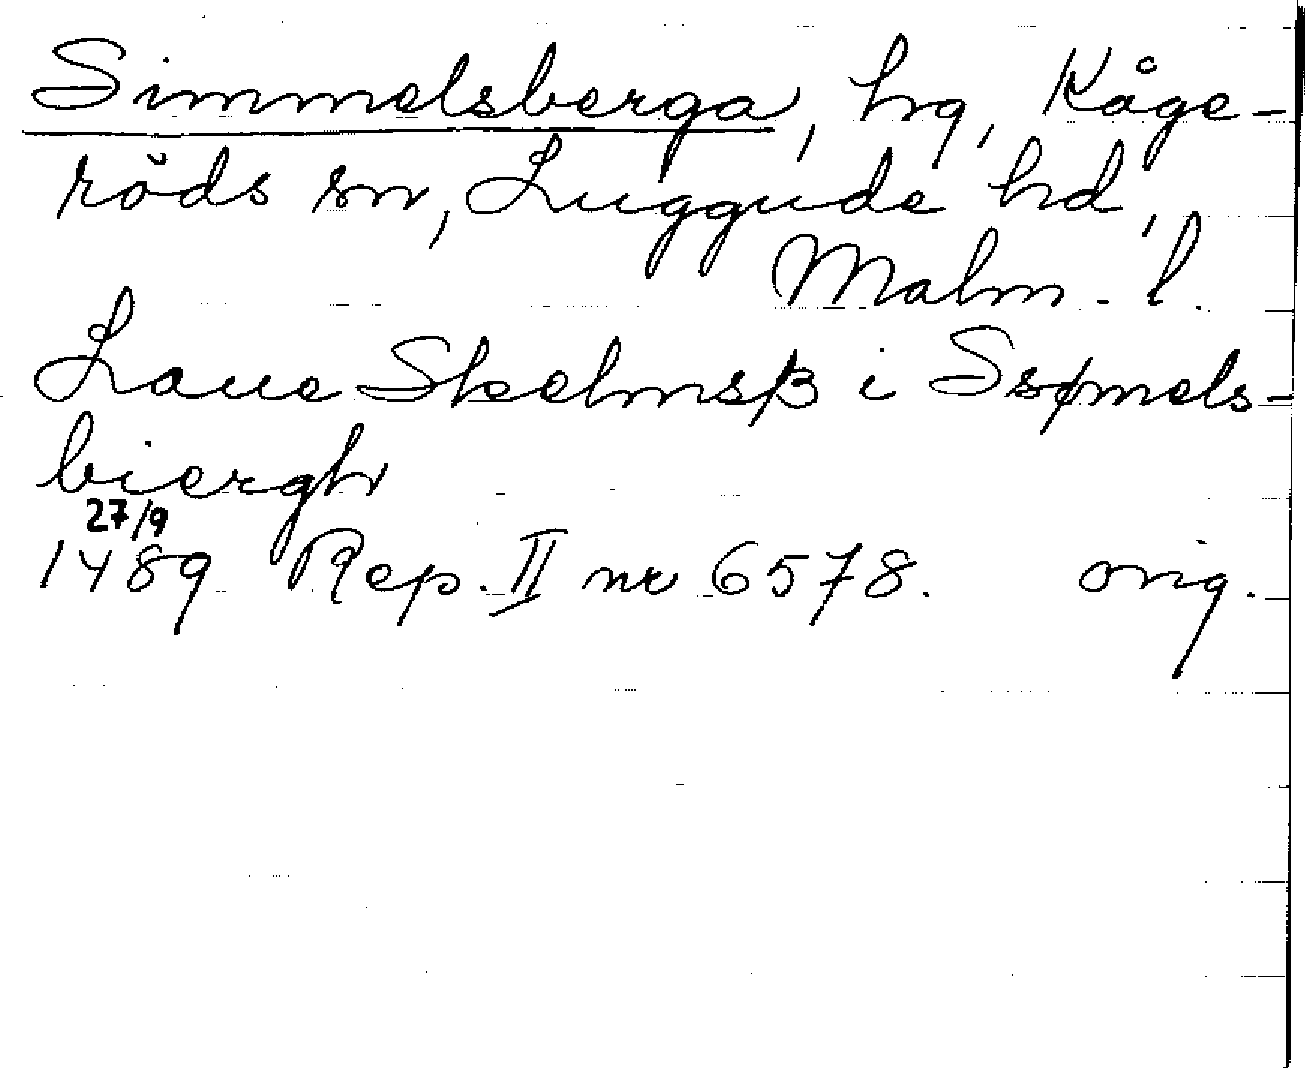 Simmelsberga, hg, Kåge-
röds sn, Luggude hd,
Malm. l.
Laue Skelmsß i Ssømels-
biergh
27/9
1489 Rep. II nr 6578. orig.